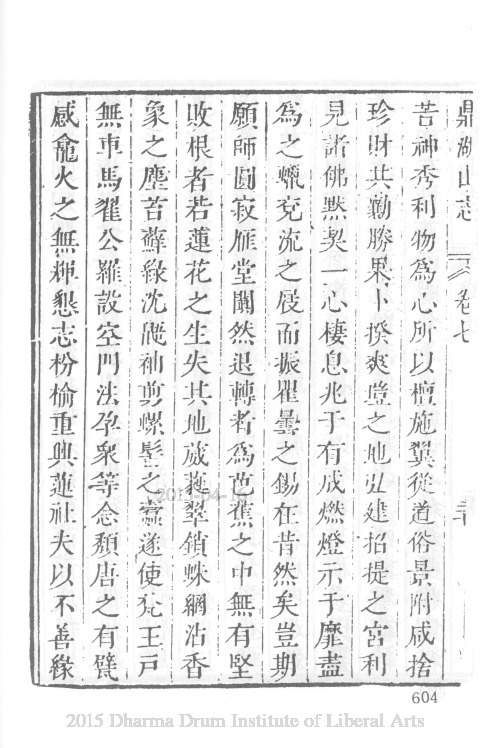 鼎湖山志 卷七 三十
苦神秀利物為心所以檀施翼從道俗景附咸捨
珍財共勷勝果卜揆爽塏之地弘建招提之宮利
見諸佛默契一心棲息兆于有成燃燈示于靡盡
為之蠟兗流之屐而振瞿曇之錫在昔然矣豈期
願師圓寂雁堂闃然退轉者為芭蕉之中無有堅
敗根者若蓮花之生失其地葳蕤翠鎖蛛網沾香
象之塵苔蘚綠沈砌袖剪螺髻之蠹遂使梵王戸
無車馬翟公羅設空門法孕衆等念頹唐之有甓
感龕火之無輝懇志枌榆重興蓮社夫以不善緣
604
2015-04-16
2015 Dharma Drum Institute of Liberal Arts